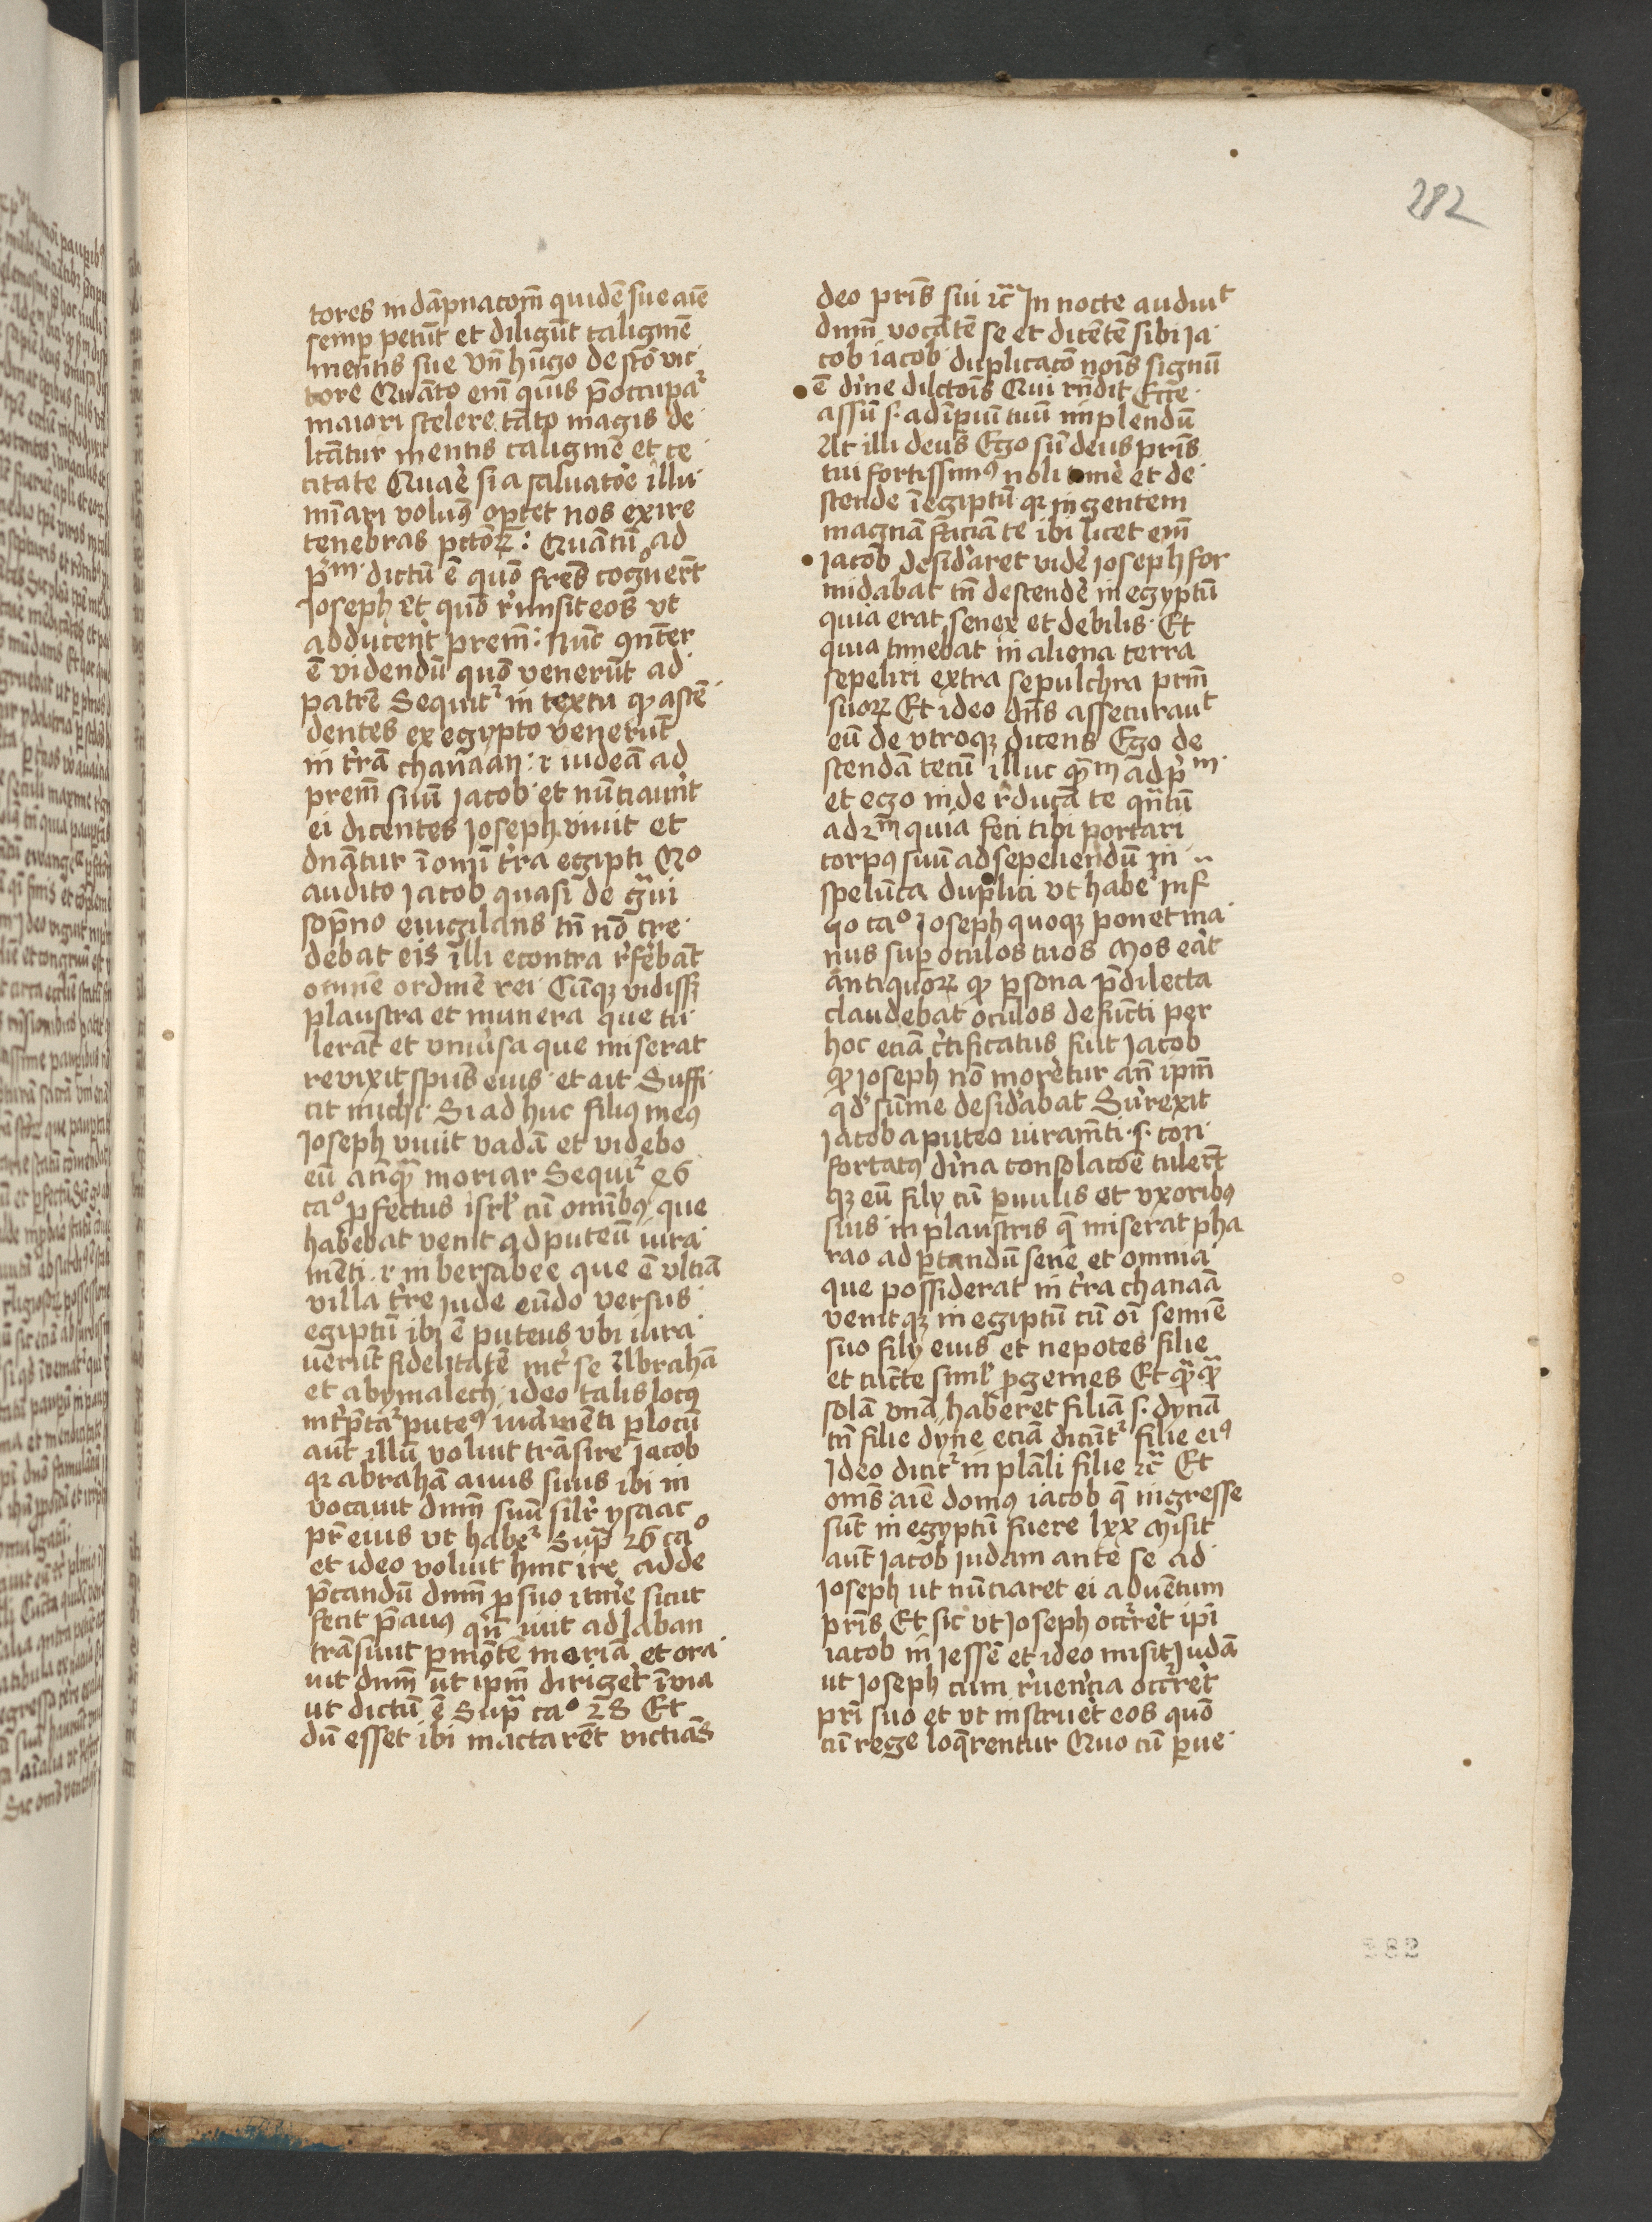 282
tores in dāpnacoīm quidē sue aīe
semp petūt et diligūt caliginē
mentis sue Vñ hugo de sctō vic
tore Quāto em̄ quis p̄occupaᷣ
maiori scelere tāto magis de
lctātur mentis caligine et ce
citate Quare si a saluatore illu
minari volum⁹ oportet nos exire
tenebras pctōꝝ : Quātū ad
p̄mᵐ dictū ē quō fr̄es cognouert̄
Joseph Et quō r̓misit eos vt
adducent pr̄em : Nūc ꝯn̄ter
ē videndū quō venerūt ad
patrē Sequitᷣ in textu ꝙ ascē
dentes ex egypto venerūt
in t̓rā chanaan : i iudeā ad
prem̄ suū Jacob et nūciauērt
ei dicentes Joseph viuit et
dnātur ī om̄i t̓ra egipti Qº
audito Jacob quasi de gᷓui
sopno euigilans tn̄ nō cre
debat eis illi econtra r̓ferebāt
omnē ordinē rei Cūqꝫ vidissꝫ
plaustra et munera que tu
lerāt et vniu̓sa que miserat
reuixit spūs eius et ait Suffi
cit michi Si ad huc filius me⁹
Joseph viuit vadā et videbo
eū anqᷓ moriar Sequiᷣ 46
caº profectus isrl̓ cū omībus que
habebat venit ad puteū iura
mēti i in bersabee que ē vltīa
villa t̓re iude eūdo versus
egiptū ibi ē puteus vbi iura
uerūt fidelitatē int̓ se Abrahā
et abymalech ideo talis locus
int̓pretaᷣ pute⁹ iuramēti p locū
aūt illū voluit trāsire Jacob
qꝛ abrahā auus suus ibi in
vocauit dnm̄ suū sil̓r ysaac
pr̄ eius vt habeᷣ Supᷓ 26 caº
et ideo voluit hinc ire adde
p̄candū dnm̄ pro suo itin̓e sicut
fecit p̄auus qn̄ iuit ad laban
trāsiuit p mōtē moriā et ora
uit dnm̄ ut ipm̄ dirigeret ī via
ut dictū ē Supᷓ caº 28 Et
dū esset ibi mactarēt victīas
deo pr̄is sui ⁊c̄ In nocte audiuit
dnm̄ vocātē se et dicētē sibi Ja
cob iacob duplicacō nois signū
ē diuine dilctois Qui rn̄dit Ecce
assū s. ad īperiū tuū implendū
At illi deus Ego sū deus pr̄is
tui fortissim⁹ noli time et de
scende ī egiptū qꝛ in gentem
magnā faciā te ibi licet em̄
Jacob desideraret vide Joseph for
midabat tn̄ descende in egyptū
quia erat senex et debilis Et
quia timebat in aliena terra
sepeliri extra sepulchra prm̄
suoꝝ Et ideo dn̄s assecurauit
eū de vtroqꝫ dicens Ego de
scendā tecū illuc quātū ad p̄mᵐ
et ego inde r̓ducā te qn̄tū
ad 2m̄ quia feci tibi portari
corpus suū ad sepeliendū in
spelūca duplici vt habeᷣ inf
qo caº Joseph quoqꝫ ponet ma
nus sup oculos tuos Mos erat
antiquoꝝ ꝙ persona p̄dilecta
claudebat oculos defūcti per
hoc eciā certificatus fuit Jacob
ꝙ Joseph nō moretur an̄ ipm̄
qd̓ sūme desiderabat Surrexit
Jacob a puteo iuramēti .s. con
fortatus diuina consolacōe tulerūt
qꝫ eū filij cū paruulis et vxoribus
suis in plaustris q̄ miserat pha
rao ad portandū senē et omnia
que possiderat in t̓ra chanaā
venitqꝫ in egiptū cū oī semīe
suo filij eius et nepotes filie
et cūcte siml̓ progenies Et qᷓqᷓ
solā vnā haberet filiā s. dynā
tn̄ filie dyne eciā dicūtᷣ filie ei⁹
Ideo diciᷣ in plāli filie ⁊c̄ Et
oms̄ aīe domus iacob q̄ ingresse
sūt in egyptū fuere lxx Misit
aūt Jacob judam ante se ad
Joseph ut nūciaret ei aduētum
pr̄is Et sic vt Joseph occureret ipī
iacob in Jessē et ideo misit Judā
ut Joseph cum reuerēcia occureret
pr̄i suo et vt instrueret eos quō
cū rege loquerentur Quo cū perue
282